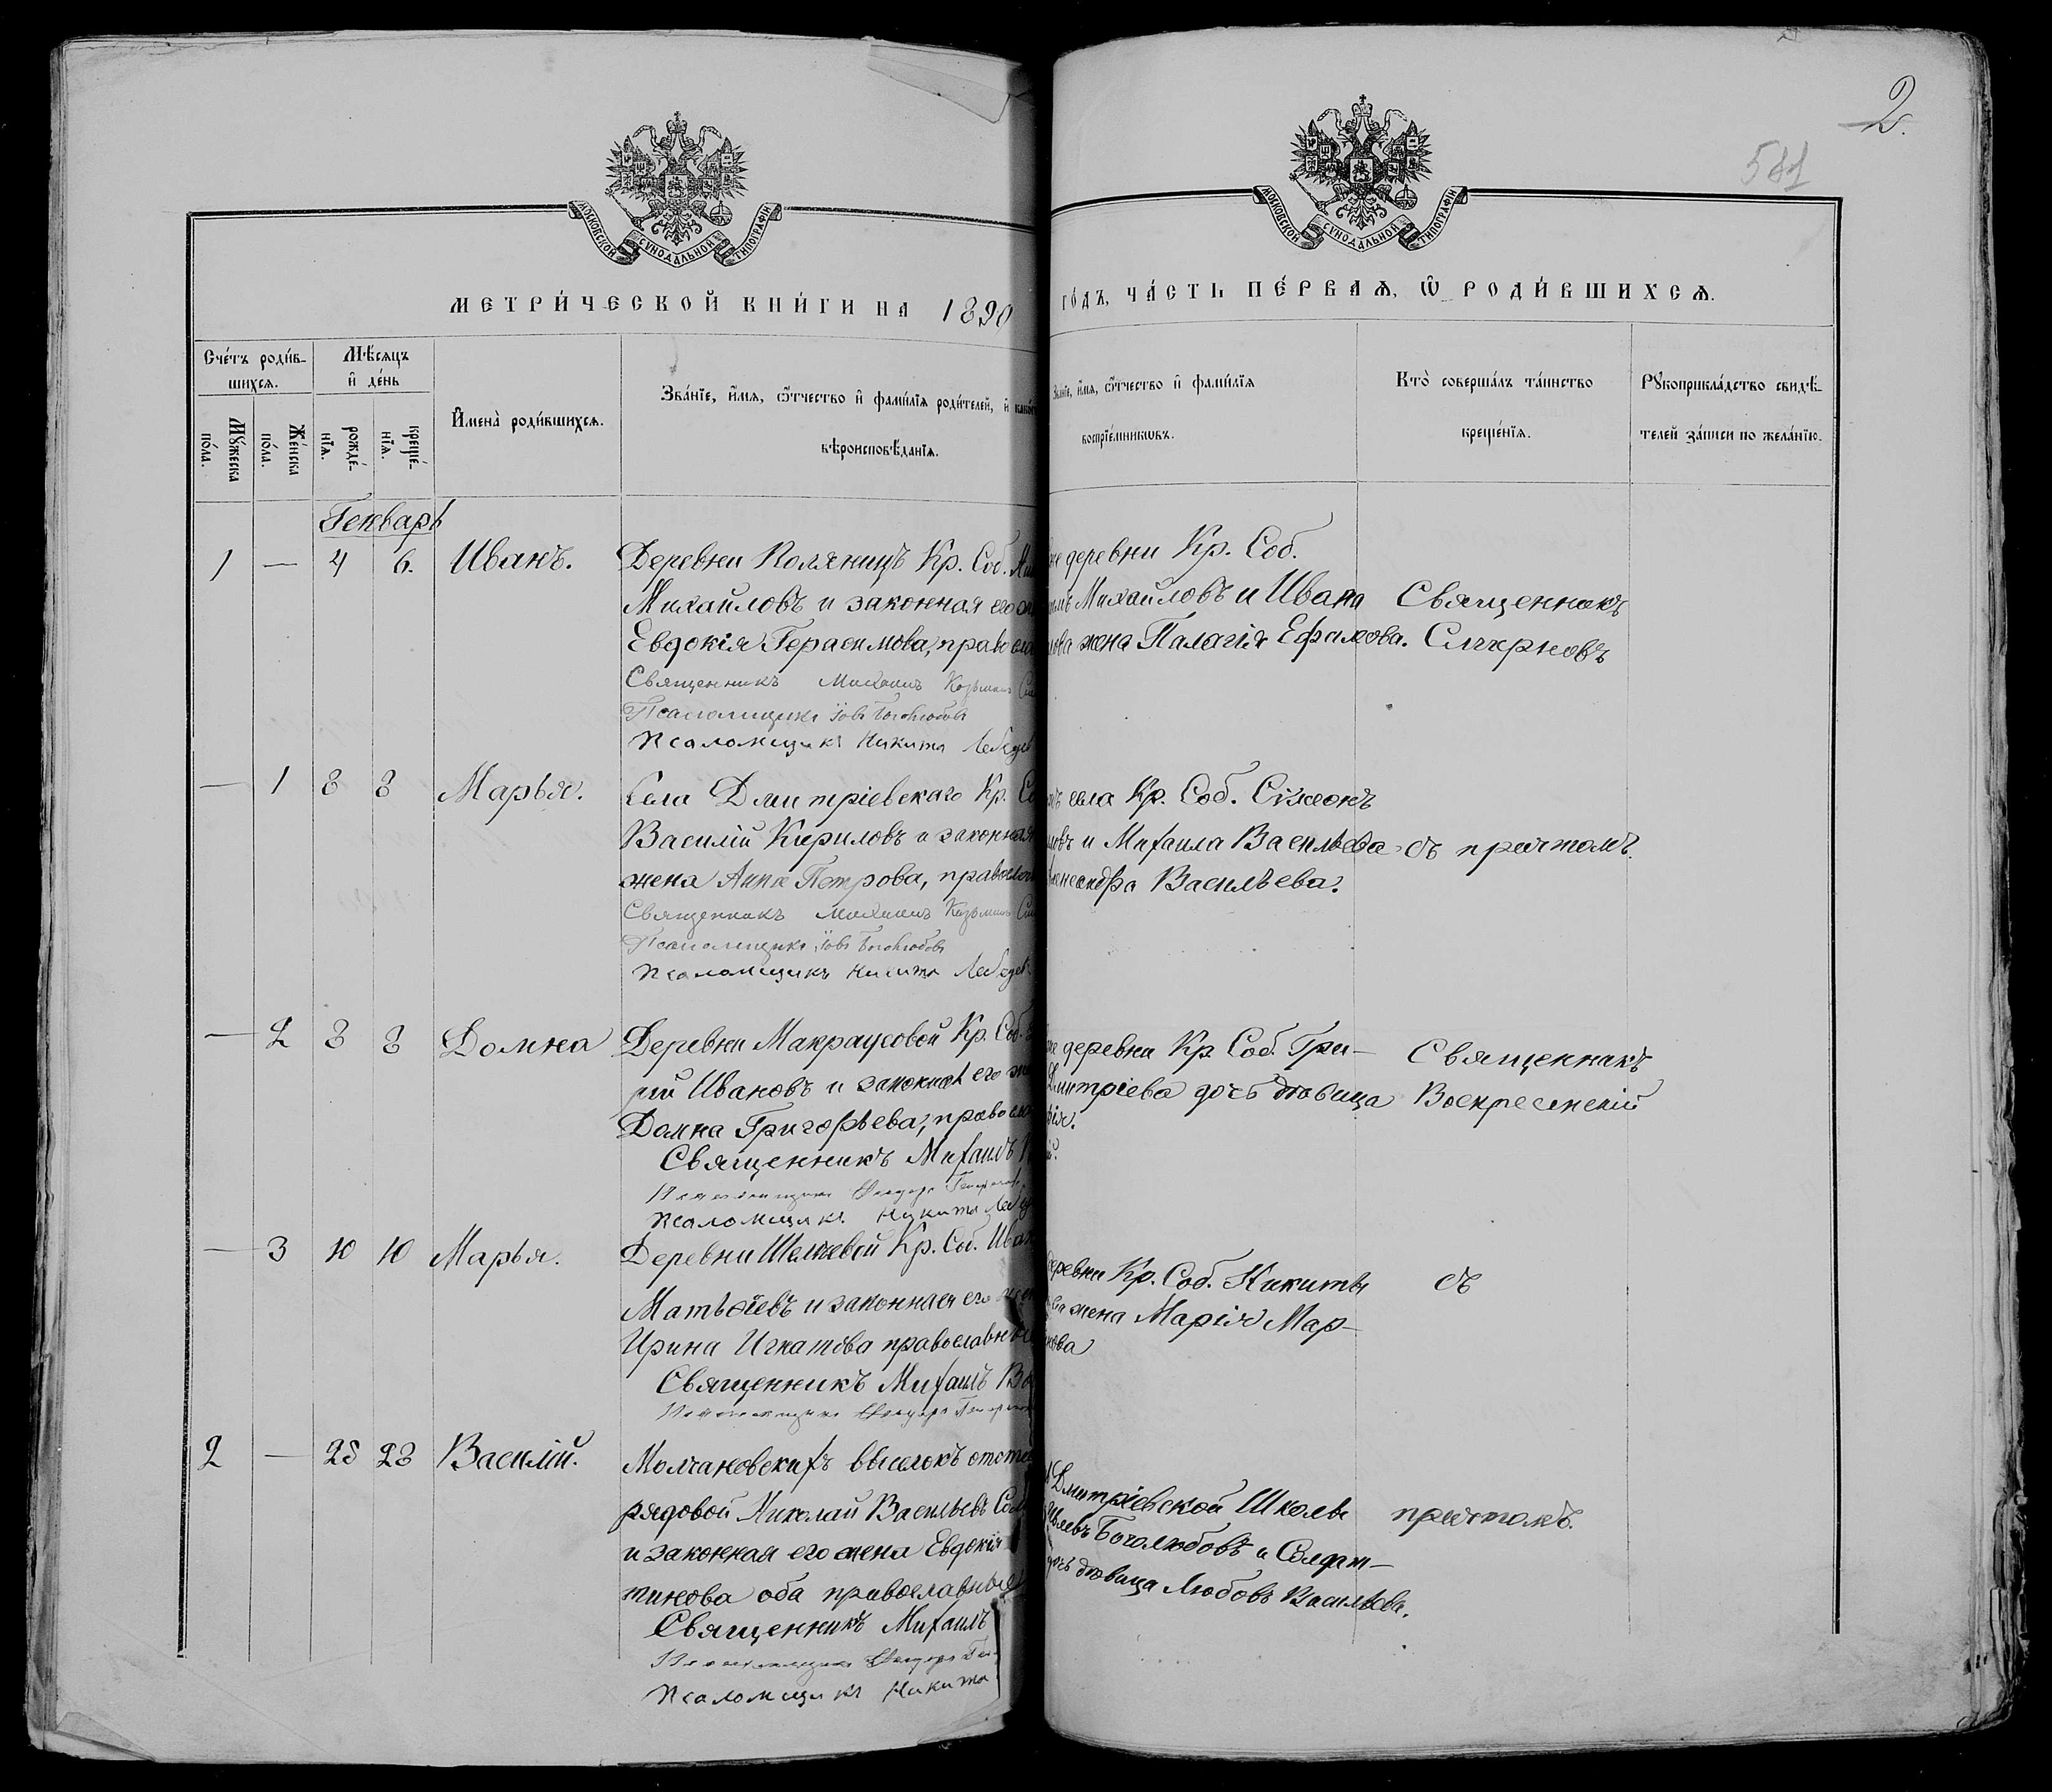 2.
581
МОСКОВСКОЙ СУНОДАЛЬНОЙ ТИПОГРАФІИ
МОСКОВСКОЙ СУНОДАЛЬНОЙ ТИПОГРАФІИ
МЕТРИ́ЧЕСКОЙ КНИ́ГИ НА 1890
ГО́ДЪ, ЧА́СТЬ ПЕ́РВАѦ, Ѡ РОДИ́ВШИХСѦ.
Сче́тъ роди́в-
шихсѧ.
Мꙋ́жеска
по́ла.
Же́нска
по́ла.
Мѣ́сѧцъ
и҆ де́нь
рожде́-
нїѧ.
креще́-
нїѧ.
И҆мена̀ роди́вшихсѧ.
Зва́нїе, и҆́мѧ, ѻ҆́тчество и҆ фамилїѧ роди́телей, и҆
вѣроисповѣ́данїѧ.
Зва́нїе, и҆́мѧ, ѻ҆́тчество и҆ фами́лїѧ
воспрїе́мникѡвъ.
Кто̀ соверша́лъ та́инство
креще́нїѧ.
Рꙋкоприкла́дство свидѣ́-
телей за́писи по жела́нїю.
Генварь
1 — 4 6. Иванъ.
Деревни Коляницъ Кр. Соб.
Михайловъ и законная его
Евдокія Герасимова,
Священникъ Михаилъ Козьминъ
Псаломщикъ Іовъ Боголюбовъ
Псаломщикъ Никита Лебедев
деревни Кр. Соб.
Михайловъ и Ивана
жена Палагія Ефимова.
Священникъ
Смирновъ
— 1 8 8 Марья.
Села Дмитріевскаго Кр.
Василій Кириловъ и законная
жена Анна Петрова,
Священникъ Михаилъ Козьминъ
Псаломщикъ Іовъ Боголюбовъ
Псаломщикъ Никита Лебедев
села Кр. Соб. Симеонъ
и Михаила Васильева
Васильева.
съ причтомъ.
— 2 8 8 Домна
Деревни Макраусовой Кр. Соб.
рій Ивановъ и законная его
Домна Григорьева,
Священникъ Михаилъ
Псаломщикъ
Псаломщикъ Никита
деревни Кр. Соб. Гри-
Дмитріева дочь дѣвица
Священникъ
Воскресенскій
— 3 10 10 Марья.
Деревни Кр. Соб. Иван
Матѳіевъ и законная его
Ирина Игнатова православны
Священникъ Михаилъ
Псаломщикъ
деревни Кр. Соб. Никиты
жена Марія Мар-
кова
съ
2 — 25 28 Василій.
Молчановскихъ выселокъ
рядовой Николай Васильевъ
и законная его жена Евдокія
тинова оба православны
Священникъ Михаилъ
Псаломщикъ
Псаломщикъ Никита
Дмитріевской Школы
Боголюбовъ и Солдат-
дочь дѣвица Любовь Васильева.
причтомъ.